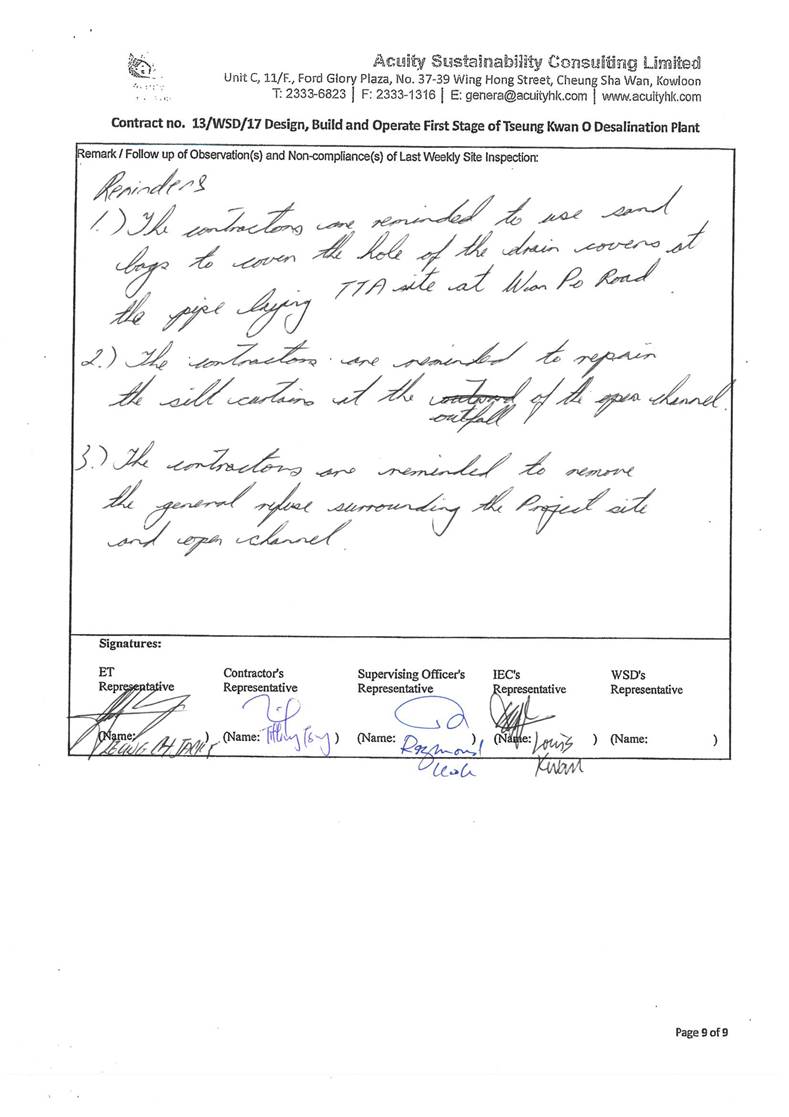 Acuity Sustainability Consulting Limited
Unit C, 11/F., Ford Glory Plaza, No. 37-39 Wing Hong Street, Cheung Sha Wan, Kowloon
T: 2333-6823 | F: 2333-1316 | E: genera@acuityhk.com | www.acuityhk.com
Contract no. 13/WSD/17 Design, Build and Operate First Stage of Tseung Kwan O Desalination Plant
Remark / Follow up of Observation(s) and Non-compliance(s) of Last Weekly Site Inspection:
Reminders
1.) The contractors are reminded to use sand
bags to cover the hole of the drain covers at
the pipe laying TTA site at Wan Po Road.
2.) The contractors are reminded to repair
the silt curtains at the of the open channel.
outfall
3.) The contractors are reminded to remove
the general refuse surrounding the Project site
and open channel.
Signatures:
ET Contractor's Supervising Officer's IEC's WSD's
Representative Representative Representative Representative Representative
(Name: ) (Name: ) (Name: Raymond ) (Name: Louis ) (Name: )
Kwan
Page 9 of 9